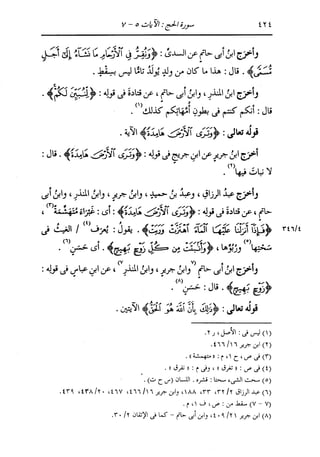 ٤٢٤ سورة الحج : الآيات ٥ - ٧
وأخرج ابنُ أبي حاتمٍ عن السديِّ : ﴿وَنُقِرُّ فِي ٱلْأَرْحَامِ مَا نَشَآءُ إِلَىٰٓ أَجَلٍ
مُّسَمًّى﴾ . قال : هذا ما كان من ولدٍ يُولَدُ تامًّا ليس بسِقْطٍ .
وأخرج ابنُ المنذرِ ، وابنُ أبي حاتمٍ ، عن قتادةَ في قولِه : ﴿لِّنُبَيِّنَ لَكُمْ﴾ .
قال : أنكم كنتم في بطونِ أمَّهاتِكم كذلك(١) .
قولُه تعالى : ﴿وَتَرَى ٱلْأَرْضَ هَامِدَةً﴾ الآية .
أخرج ابنُ جريرٍ عن ابنِ جريجٍ في قولِه : ﴿وَتَرَى ٱلْأَرْضَ هَامِدَةً﴾ . قال :
لا نباتَ فيها(٢) .
وأخرج عبدُ الرزاقِ ، وعبدُ بنُ حميدٍ ، وابنُ جريرٍ ، وابنُ المنذرِ ، وابنُ أبي
حاتمٍ ، عن قتادةَ في قولِه : ﴿وَتَرَى ٱلْأَرْضَ هَامِدَةً﴾ . أي : غبراءَ مُتَهَشِّمةً(٣)،
﴿فَإِذَآ أَنزَلْنَا عَلَيْهَا ٱلْمَآءَ ٱهْتَزَّتْ وَرَبَتْ﴾ . يقولُ : يُعرفُ(٤) / الغيثُ في ٣٤٦/٤
سَحَتِها(٥) ورُبُوِّها ، ﴿وَأَنۢبَتَتْ مِن كُلِّ زَوْجٍۭ بَهِيجٍ﴾ . أي حَسَنٍ(٦) .
وأخرج ابنُ أبي حاتمٍ (٧وابنُ جريرٍ ، وابنُ المنذرِ٧) ، عن ابنِ عباسٍ في قولِه :
﴿زَوْجٍۭ بَهِيجٍ﴾ . قال : حَسَنٍ(٨) .
قولُه تعالى : ﴿ذَٰلِكَ بِأَنَّ ٱللَّهَ هُوَ ٱلْحَقُّ﴾ الآيتين .
(١) ليس في : الأصل ، ر ٢ .
(٢) ابن جرير ١٦/ ٤٦٦ .
(٣) في ص ، ح ١ ، م : « متهشمة » .
(٤) في ص : « تفرق » ، وفي م : « نفرق » .
(٥) سحت الشيء سحتا : قشره . اللسان (س ح ت) .
(٦) عبد الرزاق ٢/ ٣٢، ٣٣، ١٨٨، وابن جرير ١٦/ ٤٦٦، ٤٦٧، ٢٠/ ٤٣٨، ٤٣٩ .
(٧ - ٧) سقط من : ص ، ف ١ ، م .
(٨) ابن جرير ٢١/ ٤٠٩، وابن أبي حاتم - كما في الإتقان ٢/ ٣٠ .